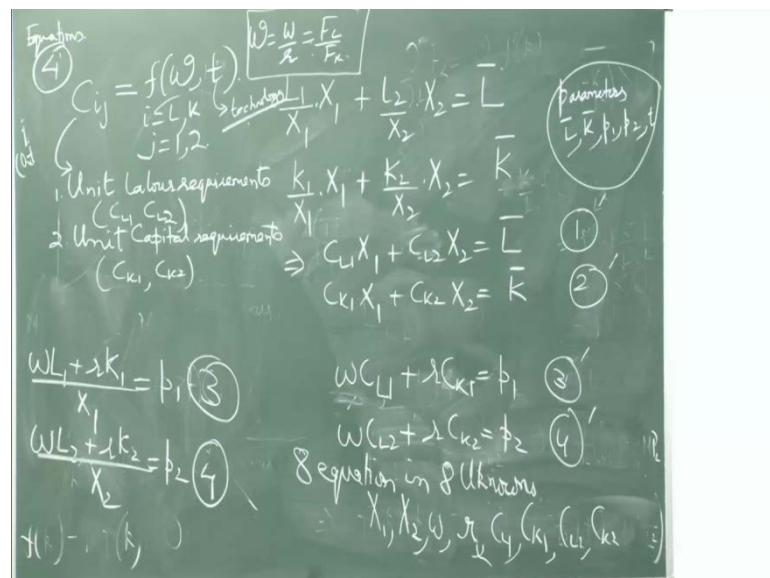 Equations
4
ω = w/r = F_L/F_K
C_ij = f(ω, t)
→ technology
i = L, K
j = 1, 2.
1. Unit Labour requirements
(C_L1, C_L2)
2. Unit Capital requirements
(C_K1, C_K2)
L_1/X_1 . X_1 + L_2/X_2 . X_2 = L̄
K_1/X_1 . X_1 + K_2/X_2 . X_2 = K̄
⇒ C_L1 X_1 + C_L2 X_2 = L̄ 1'
C_K1 X_1 + C_K2 X_2 = K̄ 2'
parameters
L̄, K̄, p_1, p_2, t
(wL_1 + rK_1)/X_1 = p_1 - 3
(wL_2 + rK_2)/X_2 = p_2 - 4
wC_L1 + rC_K1 = p_1 3'
wC_L2 + rC_K2 = p_2 4'
8 equation in 8 Uknowns
X_1, X_2, w, r, C_L1, C_K1, C_L2, C_K2